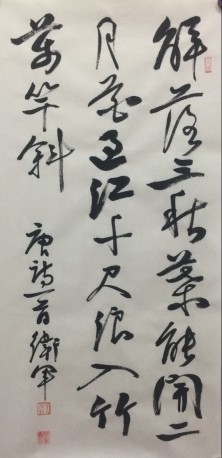 解落三秋葉能開二
月花過江千尺浪入竹
萬竿斜
唐詩一首衛軍